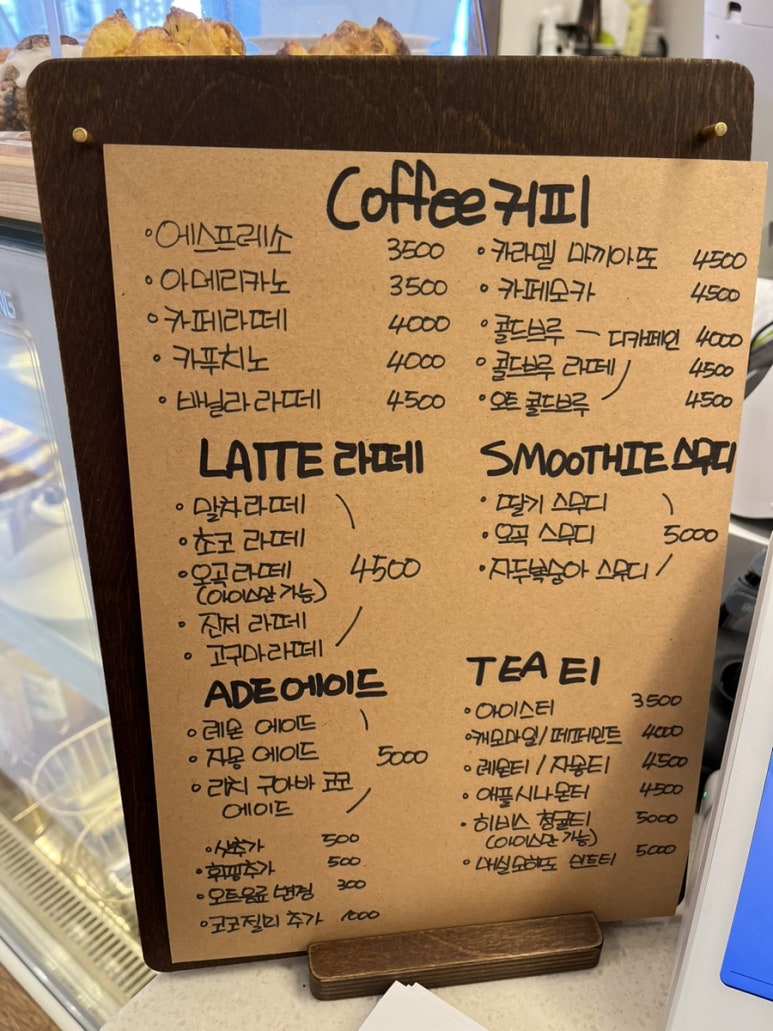 Coffee 커피
에스프레소 3500
아메리카노 3500
카페라떼 4000
카푸치노 4000
바닐라 라떼 4500
카라멜 마끼아또 4500
카페모카 4500
콜드브루 - 디카페인 4000
콜드브루 라떼 4500
오트 콜드브루 4500
LATTE 라떼
말차 라떼
초코 라떼
오곡 라떼 4500
(아이스만 가능)
진저 라떼
고구마 라떼
SMOOTHIE 스무디
딸기 스무디
오곡 스무디 5000
자두복숭아 스무디
ADE 에이드
레몬 에이드
자몽 에이드 5000
리치 구아바 코코
에이드
샷추가 500
휘핑추가 500
오트음료 변경 300
코코젤리 추가 1000
TEA 티
아이스티 3500
캐모마일/페퍼민트 4000
레몬티 / 자몽티 4500
애플시나몬티 4500
히비스 청귤티 5000
(아이스만 가능)
민트티 5000